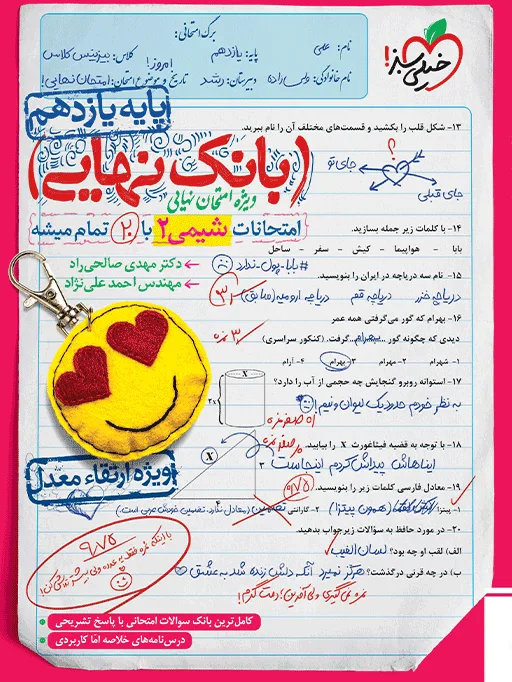 خیلی سبز!
برگ امتحانی:
نام: علی
پایه: یازدهم
کلاس: بیزینس کلاس
نام خانوادگی:
دبیرستان: رشد
تاریخ و موضوع امتحان: امروز! امتحان نهایی!
پایه یازدهم
۱۳- شکل قلب را بکشید و قسمت‌های مختلف آن را نام ببرید.
؟
جای تو
جای قبلی
(بانک نهایی)
ویژه امتحان نهایی
امتحانات شیمی ۲ با ۲۰ تمام میشه
دکتر مهدی صالحی‌راد
مهندس احمد علی‌نژاد
۱۴- با کلمات زیر جمله بسازید.
بابا - هواپیما - کیش - سفر - ساحل
#بابا-پول-ندارد
۱۵- نام سه دریاچه در ایران را بنویسید.
دریاچه خزر دریاچه قم دریاچه ارومیه (سابق)
۱۶- بهرام که گور می‌گرفتی همه عمر
دیدی که چگونه گور ..بهرام.. گرفت. (کنکور سراسری)
۳ نمره
۱- شهرام ۲- مهرام ۳- بهرام ۴- آرام
۱۷- استوانه روبرو گنجایش چه حجمی از آب را دارد؟
X
۲X
به نظر خودم حدود یک لیوان و نیم!
۱۸- با توجه به قضیه فیثاغورث X را بیابید.
X
۳
۴
ایناهاش پیداش کردم اینجاست
ویژه ارتقاء معدل
۱۹- معادل فارسی کلمات زیر را بنویسید.
۹/۷۵
۱- پیتزا (همون پیتزا) ۲- گارانتی تضمین (معادل ندارد، تضمین خودش عربی است)
۲۰- در مورد حافظ به سؤالات زیر جواب بدهید.
الف) لقب او چه بود؟ لسان الغیب
ب) در چه قرنی درگذشت؟ هرگز نمیرد آنکه دلش زنده شد به عشق
نمره نمی‌گیری ولی آفرین! دمت گرم!
۹/۷۵
کامل‌ترین بانک سوالات امتحانی با پاسخ تشریحی
درس‌نامه‌های خلاصه امّا کاربردی